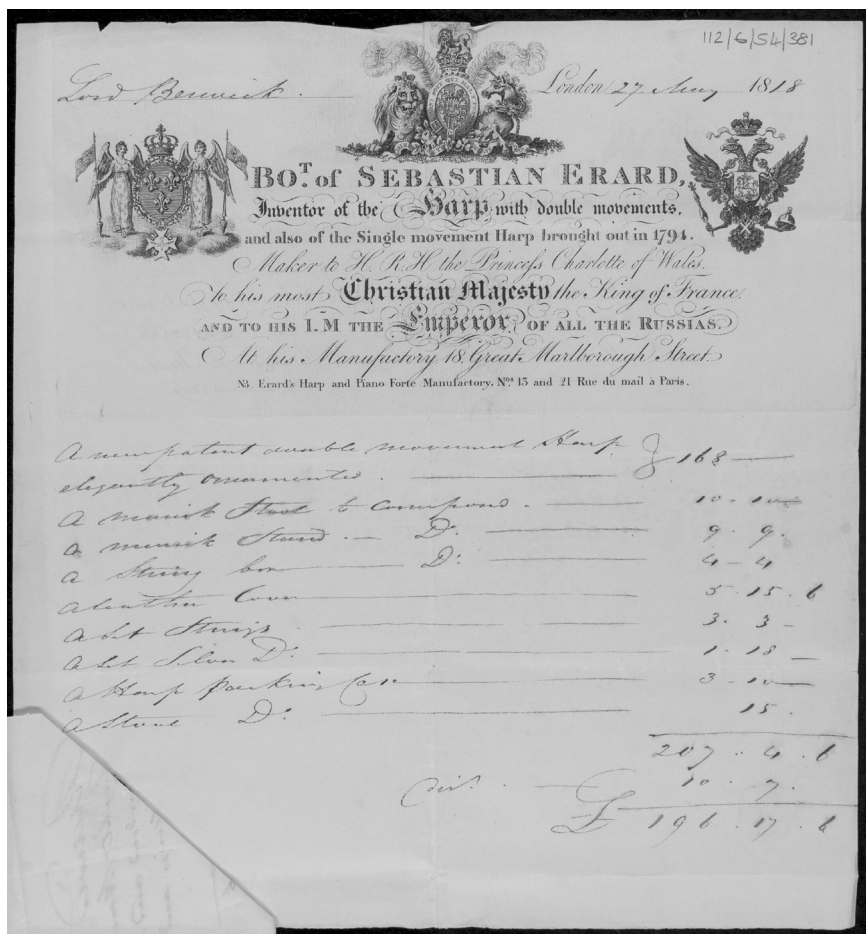 112/6/54/381
Lord Berwick.
London 27 May 1818
BOT. of SEBASTIAN ERARD,
Inventor of the Harp with double movements,
and also of the Single movement Harp brought out in 1794.
Maker to H.R.H the Princess Charlotte of Wales.
to his most Christian Majesty the King of France.
AND TO HIS I.M THE Emperor OF ALL THE RUSSIAS.
At his Manufactory 18 Great Marlborough Street.
NB. Erard's Harp and Piano Forte Manufactory. Nos. 13 and 21 Rue du mail à Paris.
A new patent double movement Harp
elegantly ornamented. 168 —
A musick Stool to correspond. 10 - 10 —
A musick Stand. — Do. 9 . 9 .
A String box — Do. 4 - 4
A leather Cover 5 . 15 . 6
A Set Strings 3 . 3 —
A Set Silver Do. 1 . 18 —
A Harp packing Case 3 - 10 —
A Stool Do. 15 .
207 . 4 . 6
10 . 7 .
£ 196 . 17 . 6